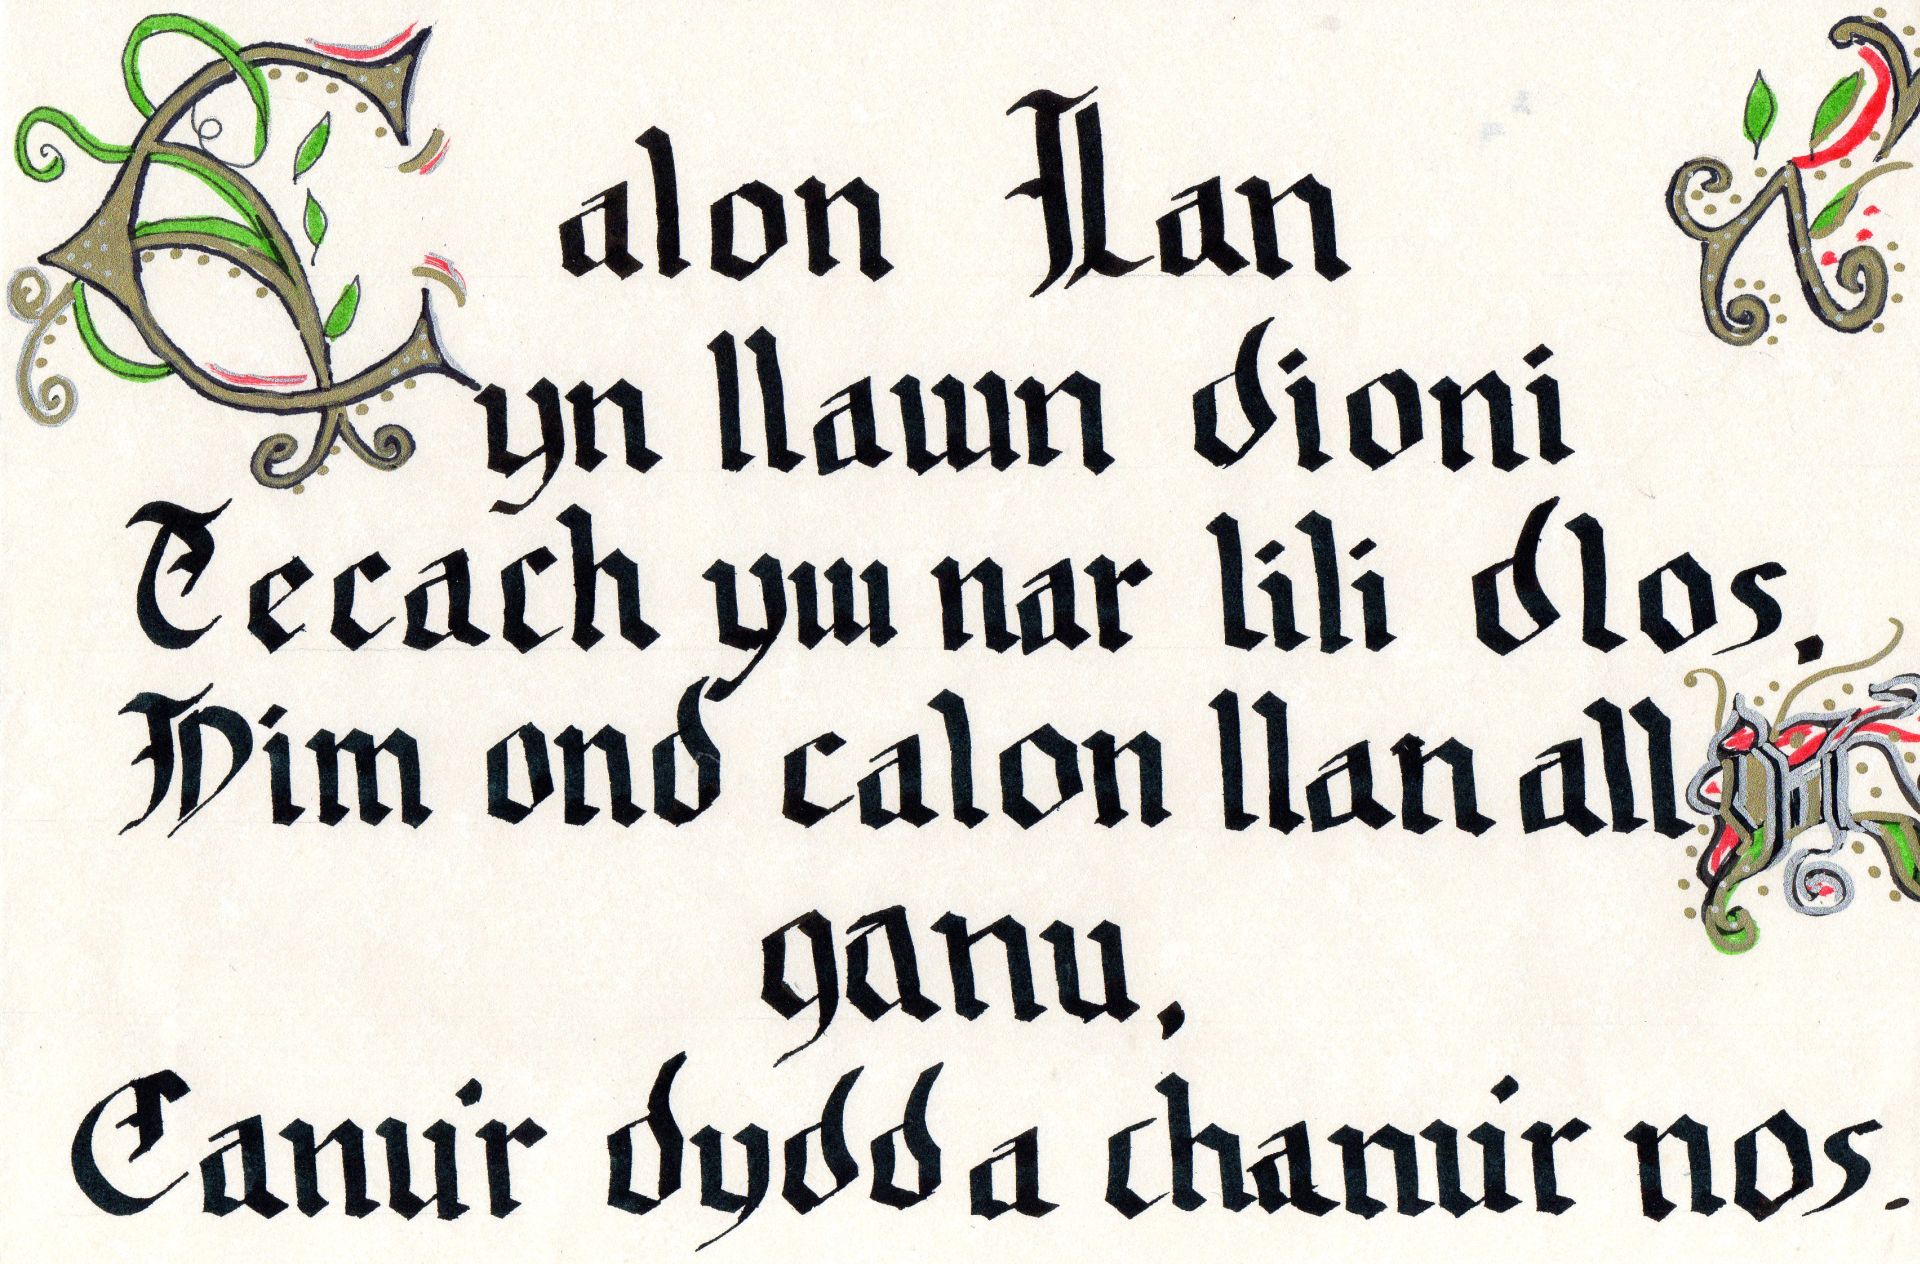 Calon Lan
yn llawn dioni
Tecach yw nar lili dlos.
Dim ond calon llan all
ganu,
Canu'r dydd a chanu'r nos.